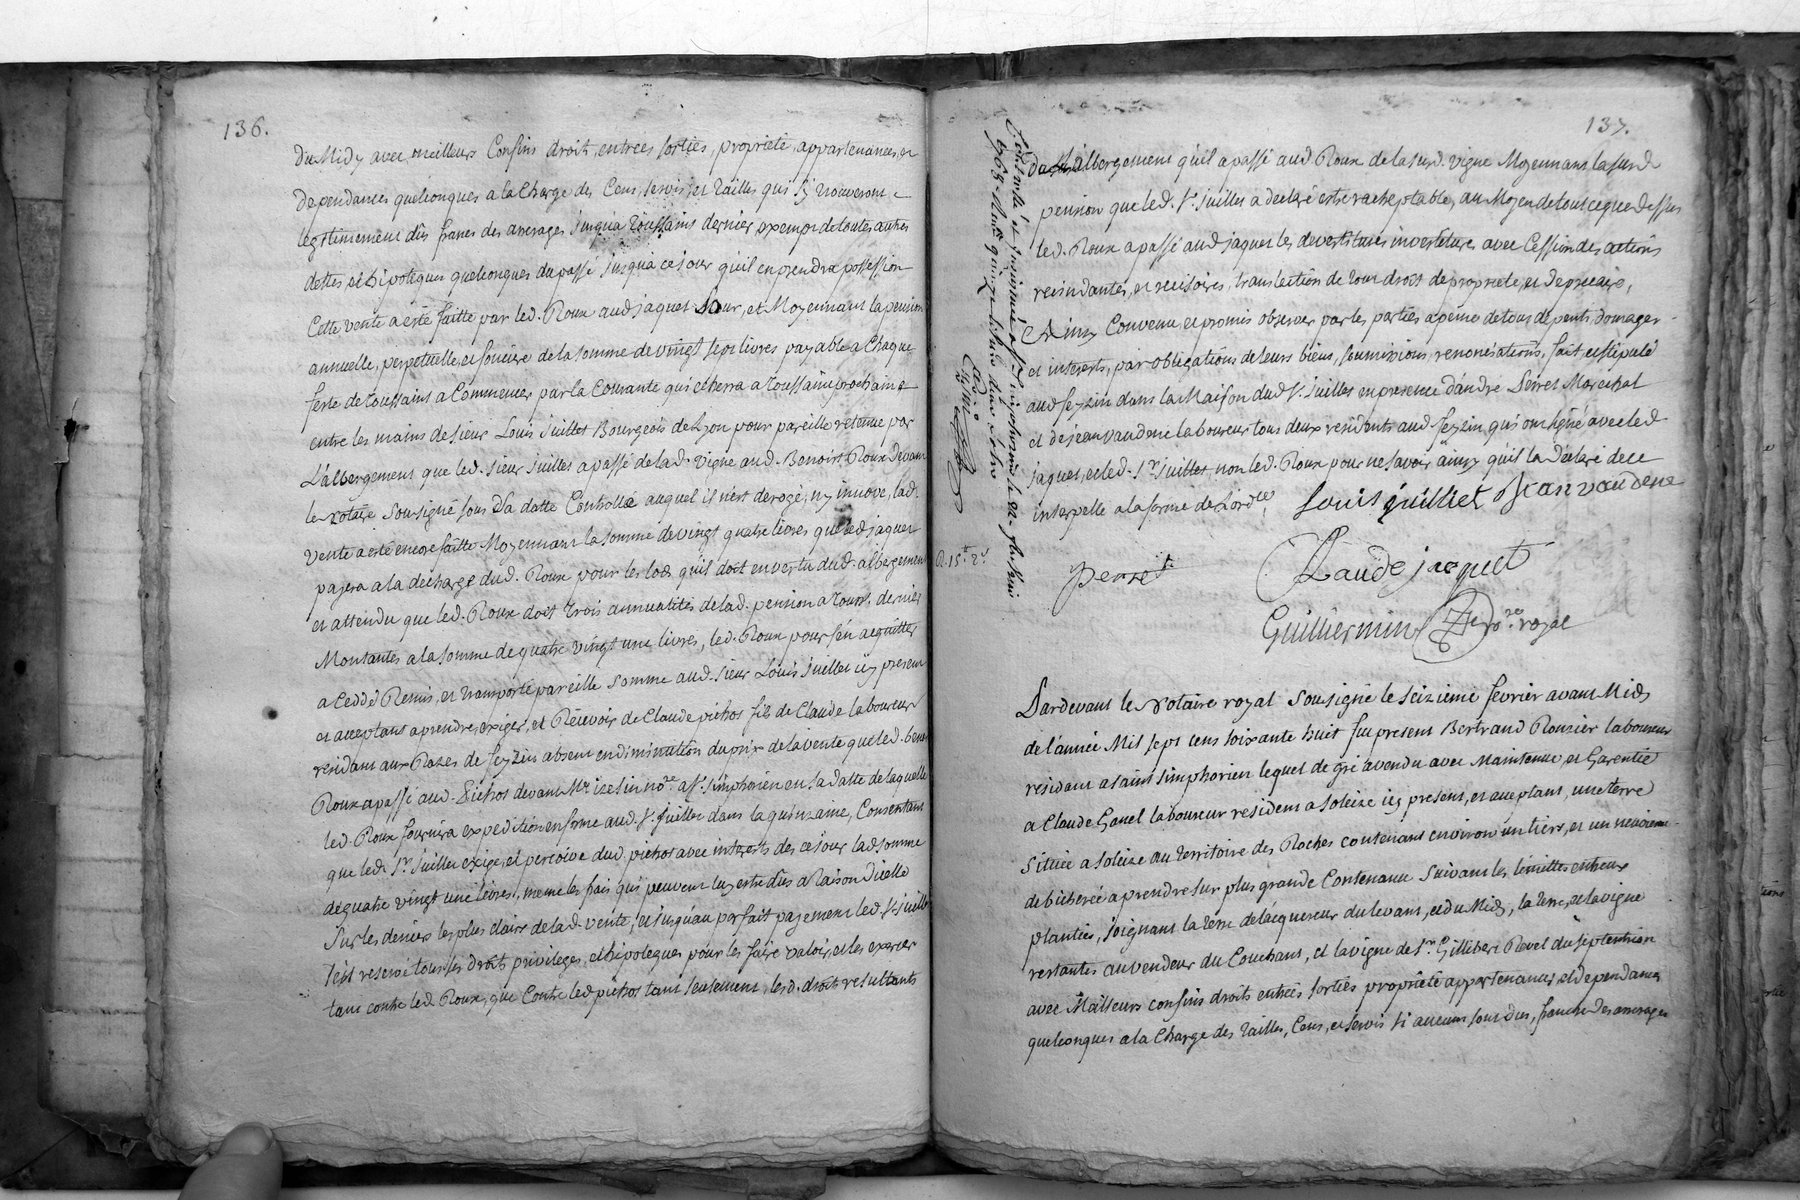 136.
du Midy avec meilleurs Confins droit, entrées sortiés, propriété, appartenances, et
dependances quelconques a la Charge des Cens, servis, et Tailles qui s'y trouveront
legitimement dûs francs des arrerages jusqua Toussains dernier, exempt de toutes autres
dettes et hipoteques quelconques du passé jusqua ce jour qu'il en prendra possession
Cette vente a été faitte par led. Roux aud jaquet pour, et Moyennant la pension
annuelle, perpetuelle, et fonciere de la somme de vingt sept livres payable a Chaque
feste de Toussains a Commencer par la Courante qui echerra a Toussains prochain
entre les mains de sieur Louis juillet Bourgeois de Lyon pour pareille retenue par
L'albergement que led. sieur juillet a passé de lad. vigne aud. Benoist Roux devant
le Notaire soussigné sous sa datte Controllé auquel il n'est derogé, ny innové, lad.
vente a eté encore faitte Moyennant la somme de vingt quatre livres que led jaquet
payera a la décharge dud. Roux pour les lods qu'il doit en vertu dud. albergement
et attendu que led. Roux doit trois annualités de lad. pension a Touss. dernier
Montantes a la somme de quatre vingt une livres, led. Roux pour s'en acquitter
a Ceddé Remis, et transporté pareille somme aud. sieur Louis juillet icy present
et acceptant a prendre, exiger, et Recevoir de Claude pichos fils de Claude laboureur
residant aux Razes de feyzin absent en diminution du prix de la vente que led. benoit
Roux a passé aud. Pichos devant Me. no.re a St. simphorien en sa datte de laquelle
led. Roux fournira expedition en forme aud. Sr. juillet dans la quinzaine, Consentant
que led. Sr. juillet exige, et perçoive dud pichos avec interests des ce jour lad somme
de quatre vingt une livres, meme les frais qui peuvent luy estre dûs a Raison d'icelle
sur les deniers les plus clairs de lad. vente, et jusqu'au parfait payement led. Sr juillet
s'est reservé tous ses droits privileges, et hipoteques pour les faire valoir, et les exercer
tant contre led. Roux, que Contre led pichos tant seulement, lesd. droits resultants
137.
de l'albergement qu'il a passé aud. Roux de la susd. vigne Moyennant la susd
pension que led. Sr. juillet a declaré estre racheptable, au Moyen de tout ce que dessus
led. Roux a passé aud jaquet les devestitures investitures avec Cession des actions
rescindantes, et recisoires, translation de tout droit de propriete, et de precaire,
Ainsy Convenu, et promis observer par les parties a peine de tous depents, domages
et interests, par obligations de leurs biens, soumissions, renonciations, fait et stipulé
aud feyzin dans la Maison dud Sr. juillet en presence d'andré Perret Marechal
et de jean vaudene laboureur tous deux residents aud feyzin qui ont signé avec led
jaquet, et led. Sr juillet, non led. Roux pour ne savoir ainsy qu'il la déclaré de ce
interpellé a la forme de L'ord.ce
Louis juilliet Jean vaudene
perret
Claude jacquet
Guilliermin No.re royal
R. 15tt 2s
Pardevant le Notaire royal soussigné le seizieme fevrier avant Midy
de l'année Mil sept cens soixante huit fut present Bertrand Ronzier laboureur
resident a saint simphorien lequel de gré a vendu avec Maintenue, et Garentie
a Claude Ganel laboureur resident a soleize icy present, et acceptant, une terre
située a soleize au territoire des Roches contenant environ un tiers, et un neuvieme
de bicherée a prendre sur plus grande Contenue suivant les limittes entreux
plantées, joignant la terre de lacquereur du levant, et du Midy, la terre, et la vigne
restantes au vendeur du Couchant, et la vigne de Sr. Gillibert Revel du septentrion
avec Meilleurs confins droits entrées sortiés propriété appartenances, et dependances
quelconques a la Charge des Tailles, Cens, et servis si aucuns sont dus, franche des arrerages